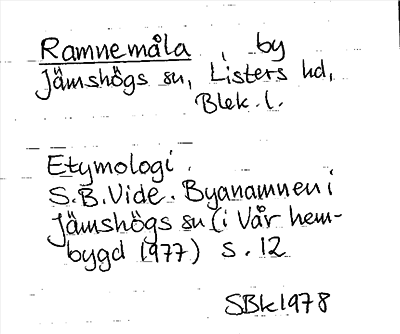 Ramnemåla, by
Jämshögs sn, Listers hd,
Blek. l.
Etymologi.
S.B. Vide. Byanamnen i
Jämshögs sn (i Vår hem-
bygd 1977) s. 12
SBk1978